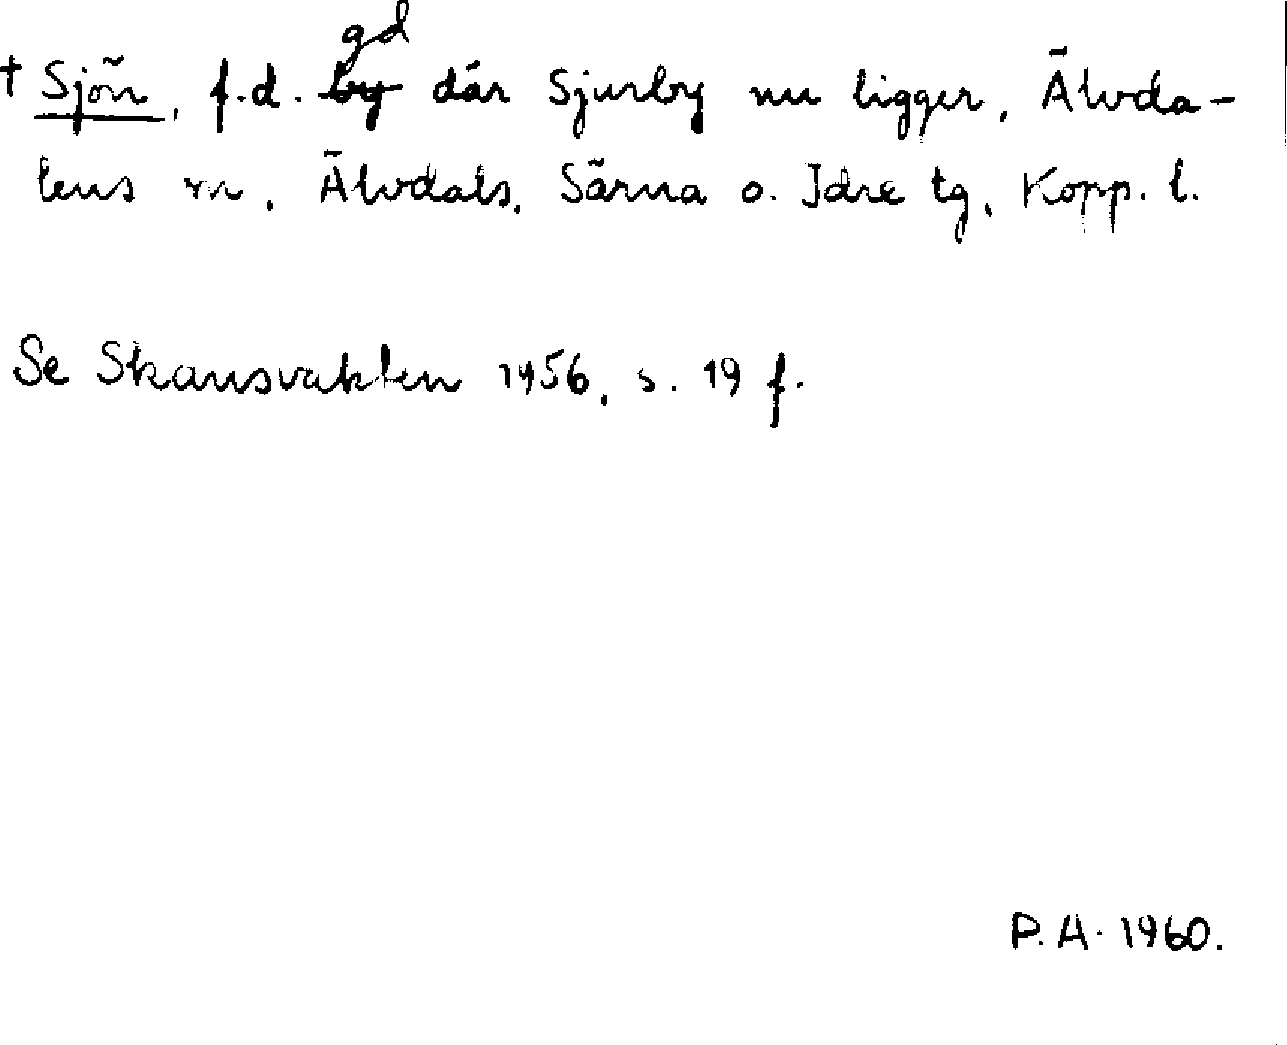 gd
† Sjön, f.d. by där Sjurby nu ligger, Älvda-
lens sn, Älvdals, Särna o. Idre tg, Kopp. l.
Se Skansvakten 1956, s. 19 f.
P.A. 1960.